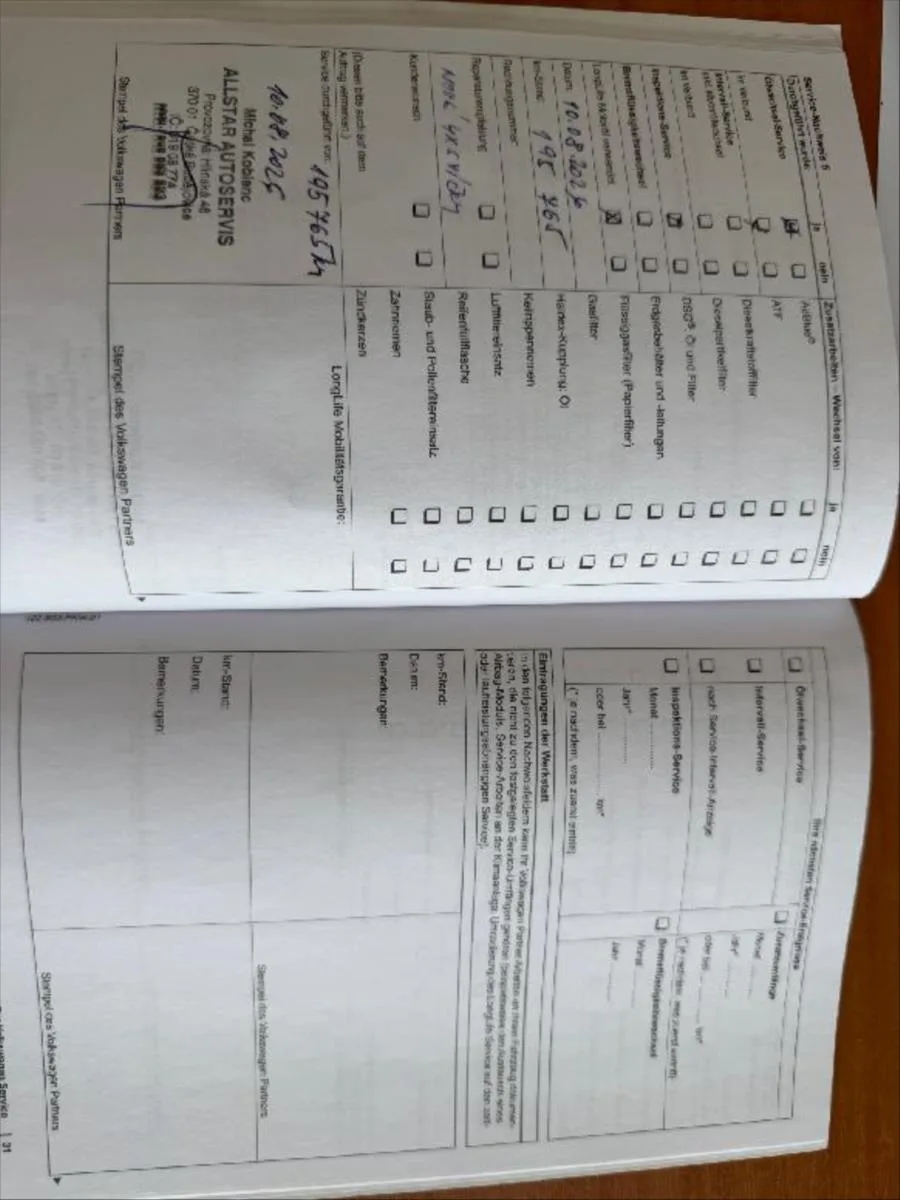 Service-Nachweis 5
Durchgeführt wurde:
ja
nein
Ölwechsel-Service
im Verbund
Intervall-Service
inkl. Ölfilterwechsel
im Verbund
Inspektions-Service
Bremsflüssigkeitswechsel
LongLife Motoröl verwendet
Datum: 10.08.2024
km-Stand: 195 765
Rechnungsnummer:
Reparaturempfehlung
Kundenwunsch
(Diesen bitte auch auf dem
Auftrag vermerken.)
Service durchgeführt von:
195765 km
10.08.2025
Michal Koblenc
ALLSTAR AUTOSERVIS
Provozovna Hlinská 48
370 01
Stempel des Volkswagen Partners
Zusatzarbeiten – Wechsel von:
ja
nein
AdBlue®
ATF
Dieselkraftstofffilter
Dieselpartikelfilter
DSG®: Öl und Filter
Erdgasbehälter und -leitungen
Flüssiggasfilter (Papierfilter)
Gasfilter
Haldex-Kupplung: Öl
Keilrippenriemen
Luftfiltereinsatz
Reifenfüllflasche
Staub- und Pollenfiltereinsatz
Zahnriemen
Zündkerzen
LongLife Mobilitätsgarantie:
Stempel des Volkswagen Partners
Ihre nächsten Service-Ereignisse
Ölwechsel-Service
Intervall-Service
nach Service-Intervall-Anzeige
Inspektions-Service
Monat
Jahr*
oder bei km*
(* je nachdem, was zuerst eintritt)
Zusatzumfänge
Monat
Jahr*
oder bei km*
(* je nachdem, was zuerst eintritt)
Bremsflüssigkeitswechsel
Monat
Jahr
Eintragungen der Werkstatt
In den folgenden Nachweisfeldern kann Ihr Volkswagen Partner Arbeiten an Ihrem Fahrzeug dokumen-
tieren, die nicht zu den festgelegten Service-Umfängen gehören (beispielsweise den Austausch eines
Airbag-Moduls, Service-Arbeiten an der Klimaanlage, Umcodierung des LongLife Service auf den zeit-
oder laufleistungsabhängigen Service).
km-Stand:
Datum:
Bemerkungen:
Stempel des Volkswagen Partners
km-Stand:
Datum:
Bemerkungen:
Stempel des Volkswagen Partners
Service
31